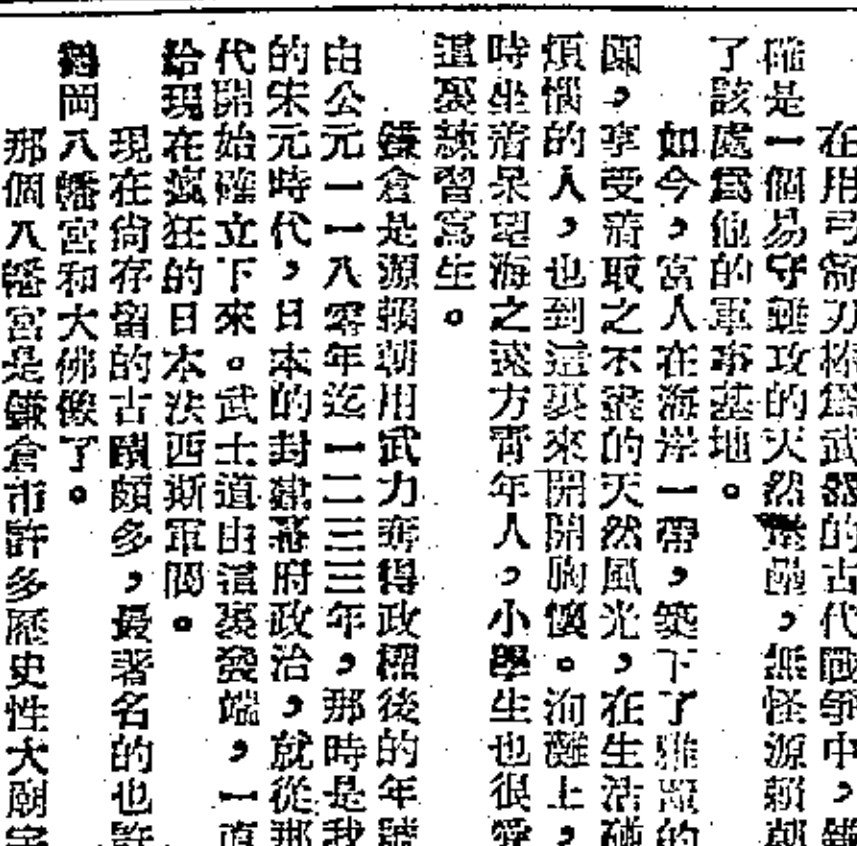 在用弓箭刀槍爲武器的古代戰爭中，鎌
確是一個易守難攻的天然堡壘，無怪源賴朝
了該處爲他的軍事基地。
如今，富人在海岸一帶，築下了雅緻的
園，享受着取之不盡的天然風光，在生活
煩惱的人，也到這裏來開開胸懷。海灘上，
時坐着呆望海之遠方青年人，小學生也很愛
這裏練習寫生。
鎌倉是源賴朝用武力奪得政權後的年號
由公元一一八零年迄一二三三年，那時是我
的宋元時代，日本的封建幕府政治，就從那
代開始確立下來。武士道由這裏發端，一直
給現在瘋狂的日本法西斯軍閥。
現在尙存留的古蹟頗多，最著名的也許
鶴岡八幡宮和大佛像了。
那個八幡宮是鎌倉市許多歷史性大廟宇